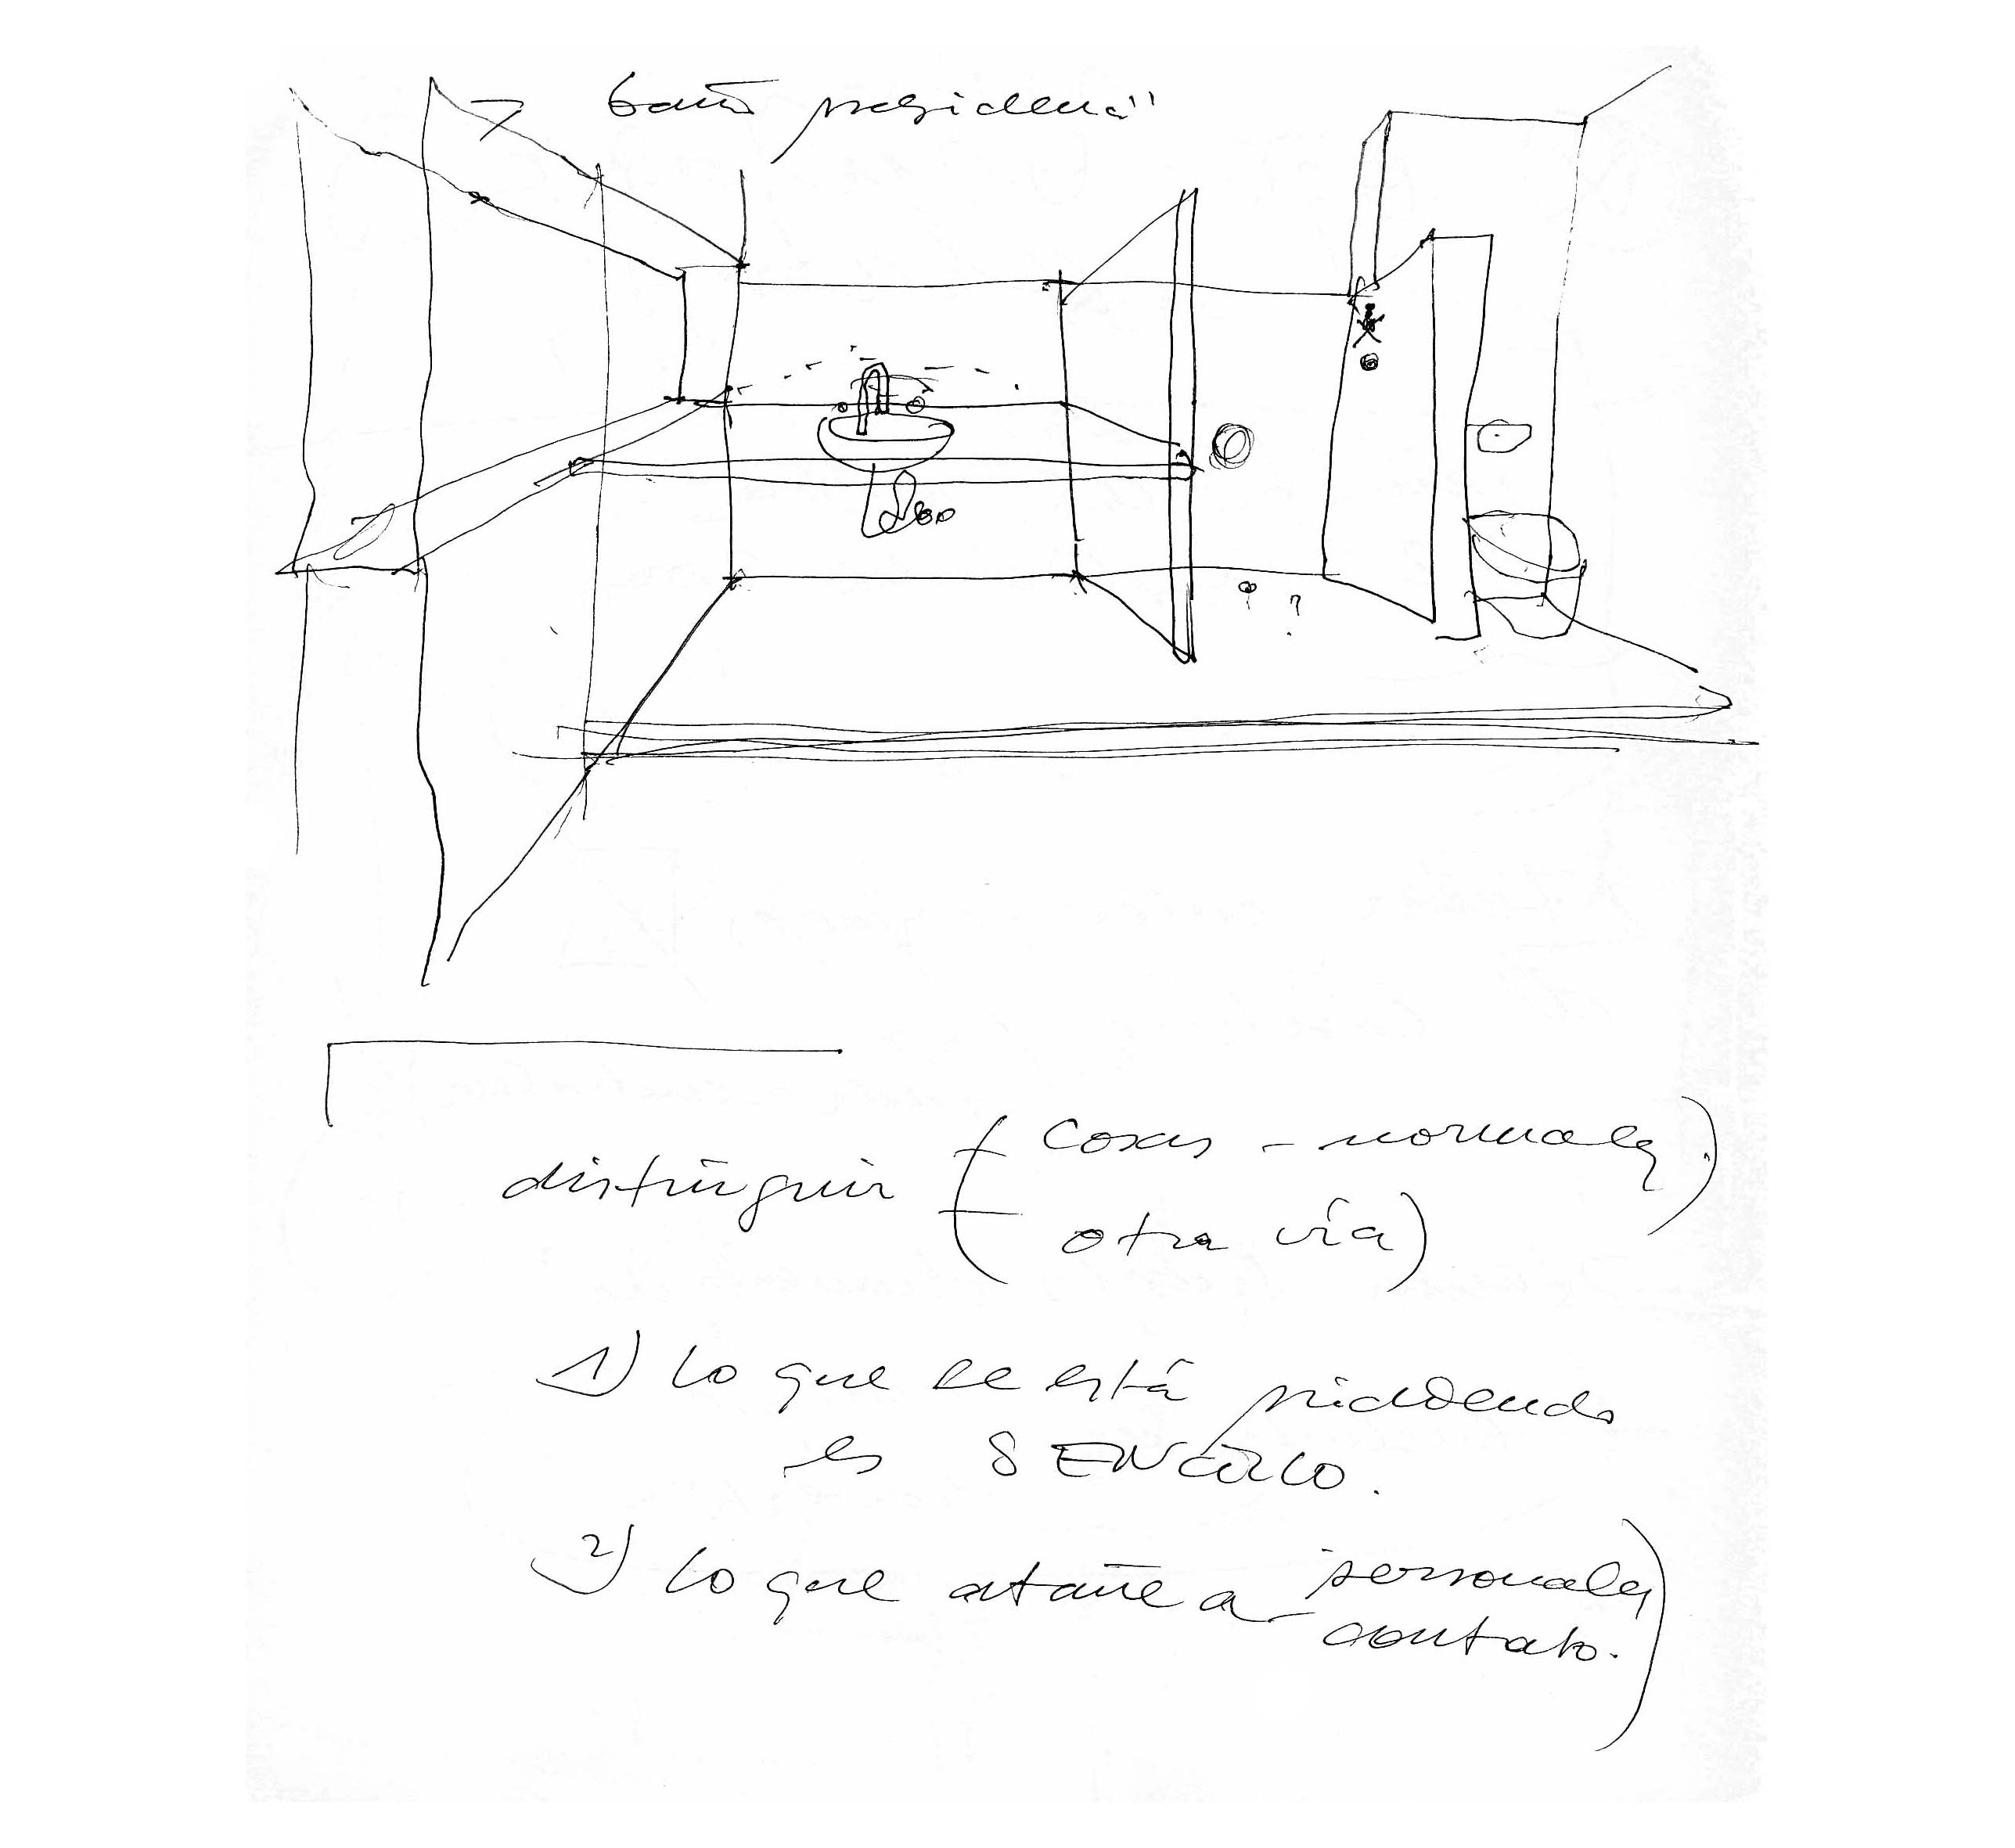 baño presidencia"
?
distinguir ( cosas - normales )
otra vía)
1) Lo que se está pidiendo
es SENCILLO.
2) Lo que atañe a personales
contato.